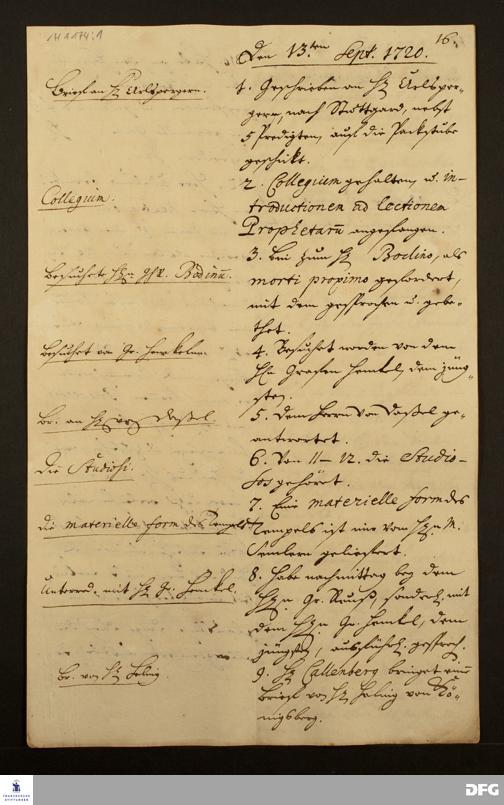 16.
Den 13.ten Sept. 1720.
Brief an H. Urlspergern.
1. Geschrieben an H. Urlsper-
gern, nach Stuttgard, nebst
5 Predigten, auf die Packstube
geschickt.
Collegium.
2. Collegium gehalten, u. in-
troductionem ad lectionem
Prophetarum angefangen.
Besuchet H. Bodinum.
3. Bin zum H. Bodino, als
morti proximo gefordert,
mit dem gesprochen u. gebe-
thet.
Besuchet von Gr. Henkeln.
4. Besuchet worden von dem
H. Grafen Henkel, dem jüng-
sten.
Br. an H. von Daßel.
5. Dem Herrn von Daßel ge-
antwortet.
Die Studiosi.
6. Von 11 – 12. die Studio-
sos gehöret.
die materielle form des Tempels
7. Eine materielle form des
Tempels ist mir vom H. M.
Semlern geliefert.
Unterred. mit H. Gr. Henkel.
8. Habe nachmittag bey dem
H. Gr. Reuß, sonderl. mit
dem H. Gr. Henkel, dem
jüngsten, ausführl. gesproch.
Br. von H.
9. H. Callenberg bringet einen
Brief von H. von Kö-
nigsberg.
FRANCKESCHE
STIFTUNGEN
DFG